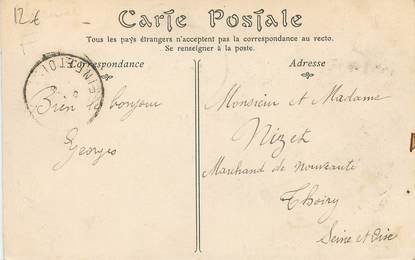 12€
Carte Postale
Tous les pays étrangers n'acceptent pas la correspondance au recto.
Se renseigner à la poste.
Correspondance
Adresse
Bien le bonjour
Georges
Monsieur et Madame
Nizet
Marchand de nouveauté
Thoiry
Seine et Oise